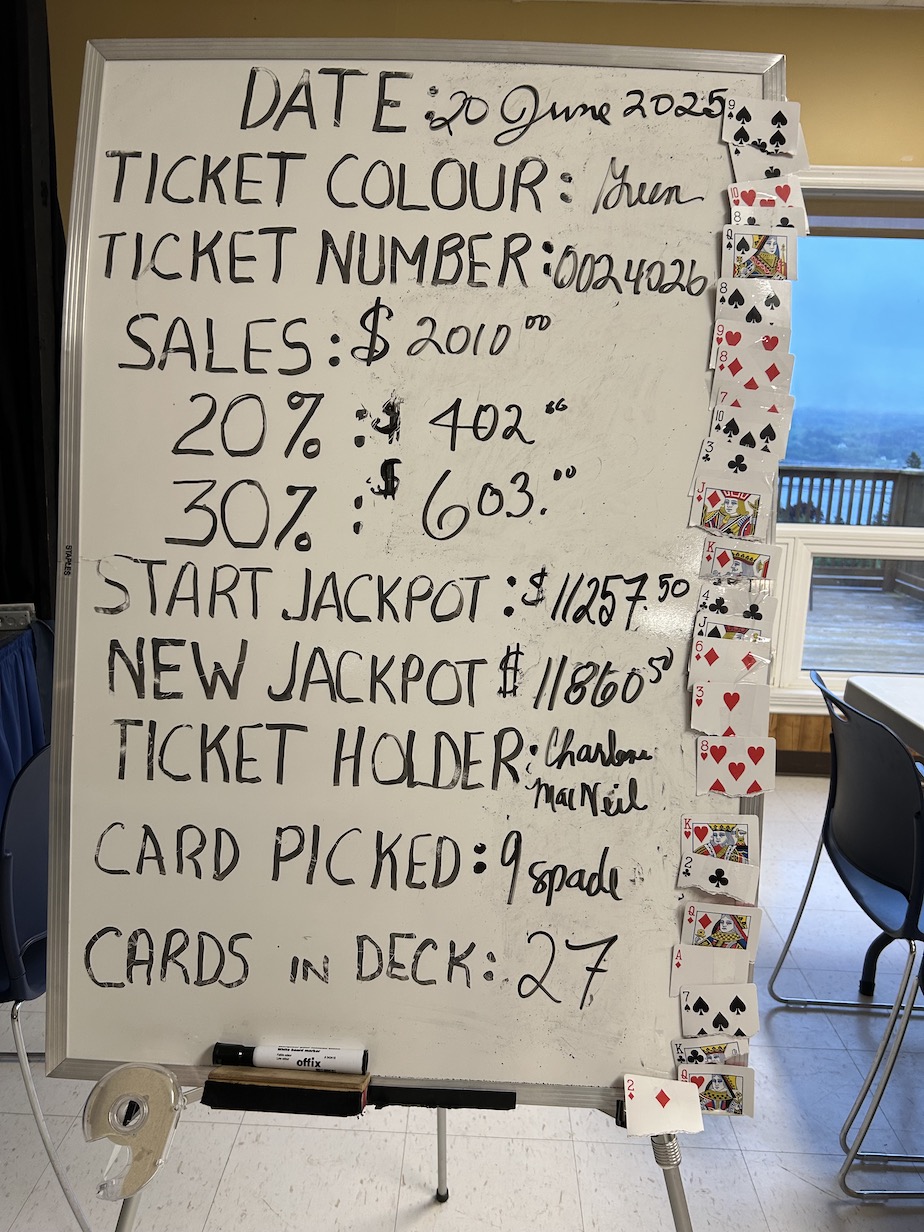 DATE: 20 June 2025
TICKET COLOUR: Green
TICKET NUMBER: 0024026
SALES: $ 2010 00
20% : $ 402 00
30% : $ 603.00
START JACKPOT: $ 11257.50
NEW JACKPOT $ 11860 50
TICKET HOLDER: Charlene
MacNeil
CARD PICKED: 9 spade
CARDS IN DECK: 27
STAPLES
offix
9
10
8
Q
8
9
8
7
10
3
J
K
4
J
6
3
8
K
2
Q
A
7
K
Q
2